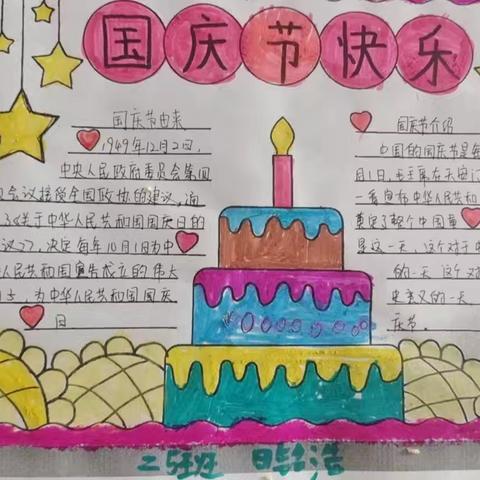 国庆节快乐
国庆节由来
1949年12月2日,
中央人民政府委员会第四
会议接受全国政协的建议,通
了《关于中华人民共和国国庆日的
议》,决定每年10月1日为中
人民共和国宣告成立的伟大
日子,为中华人民共和国国庆
日
国庆节介绍
中国的国庆节是每
月1日,毛主席在天安门
一声宣布中华人民共和
奠定了整个中国
是这一天,这个对于中
的一天 这个对
史意义的一天
庆节。
二5班
浩